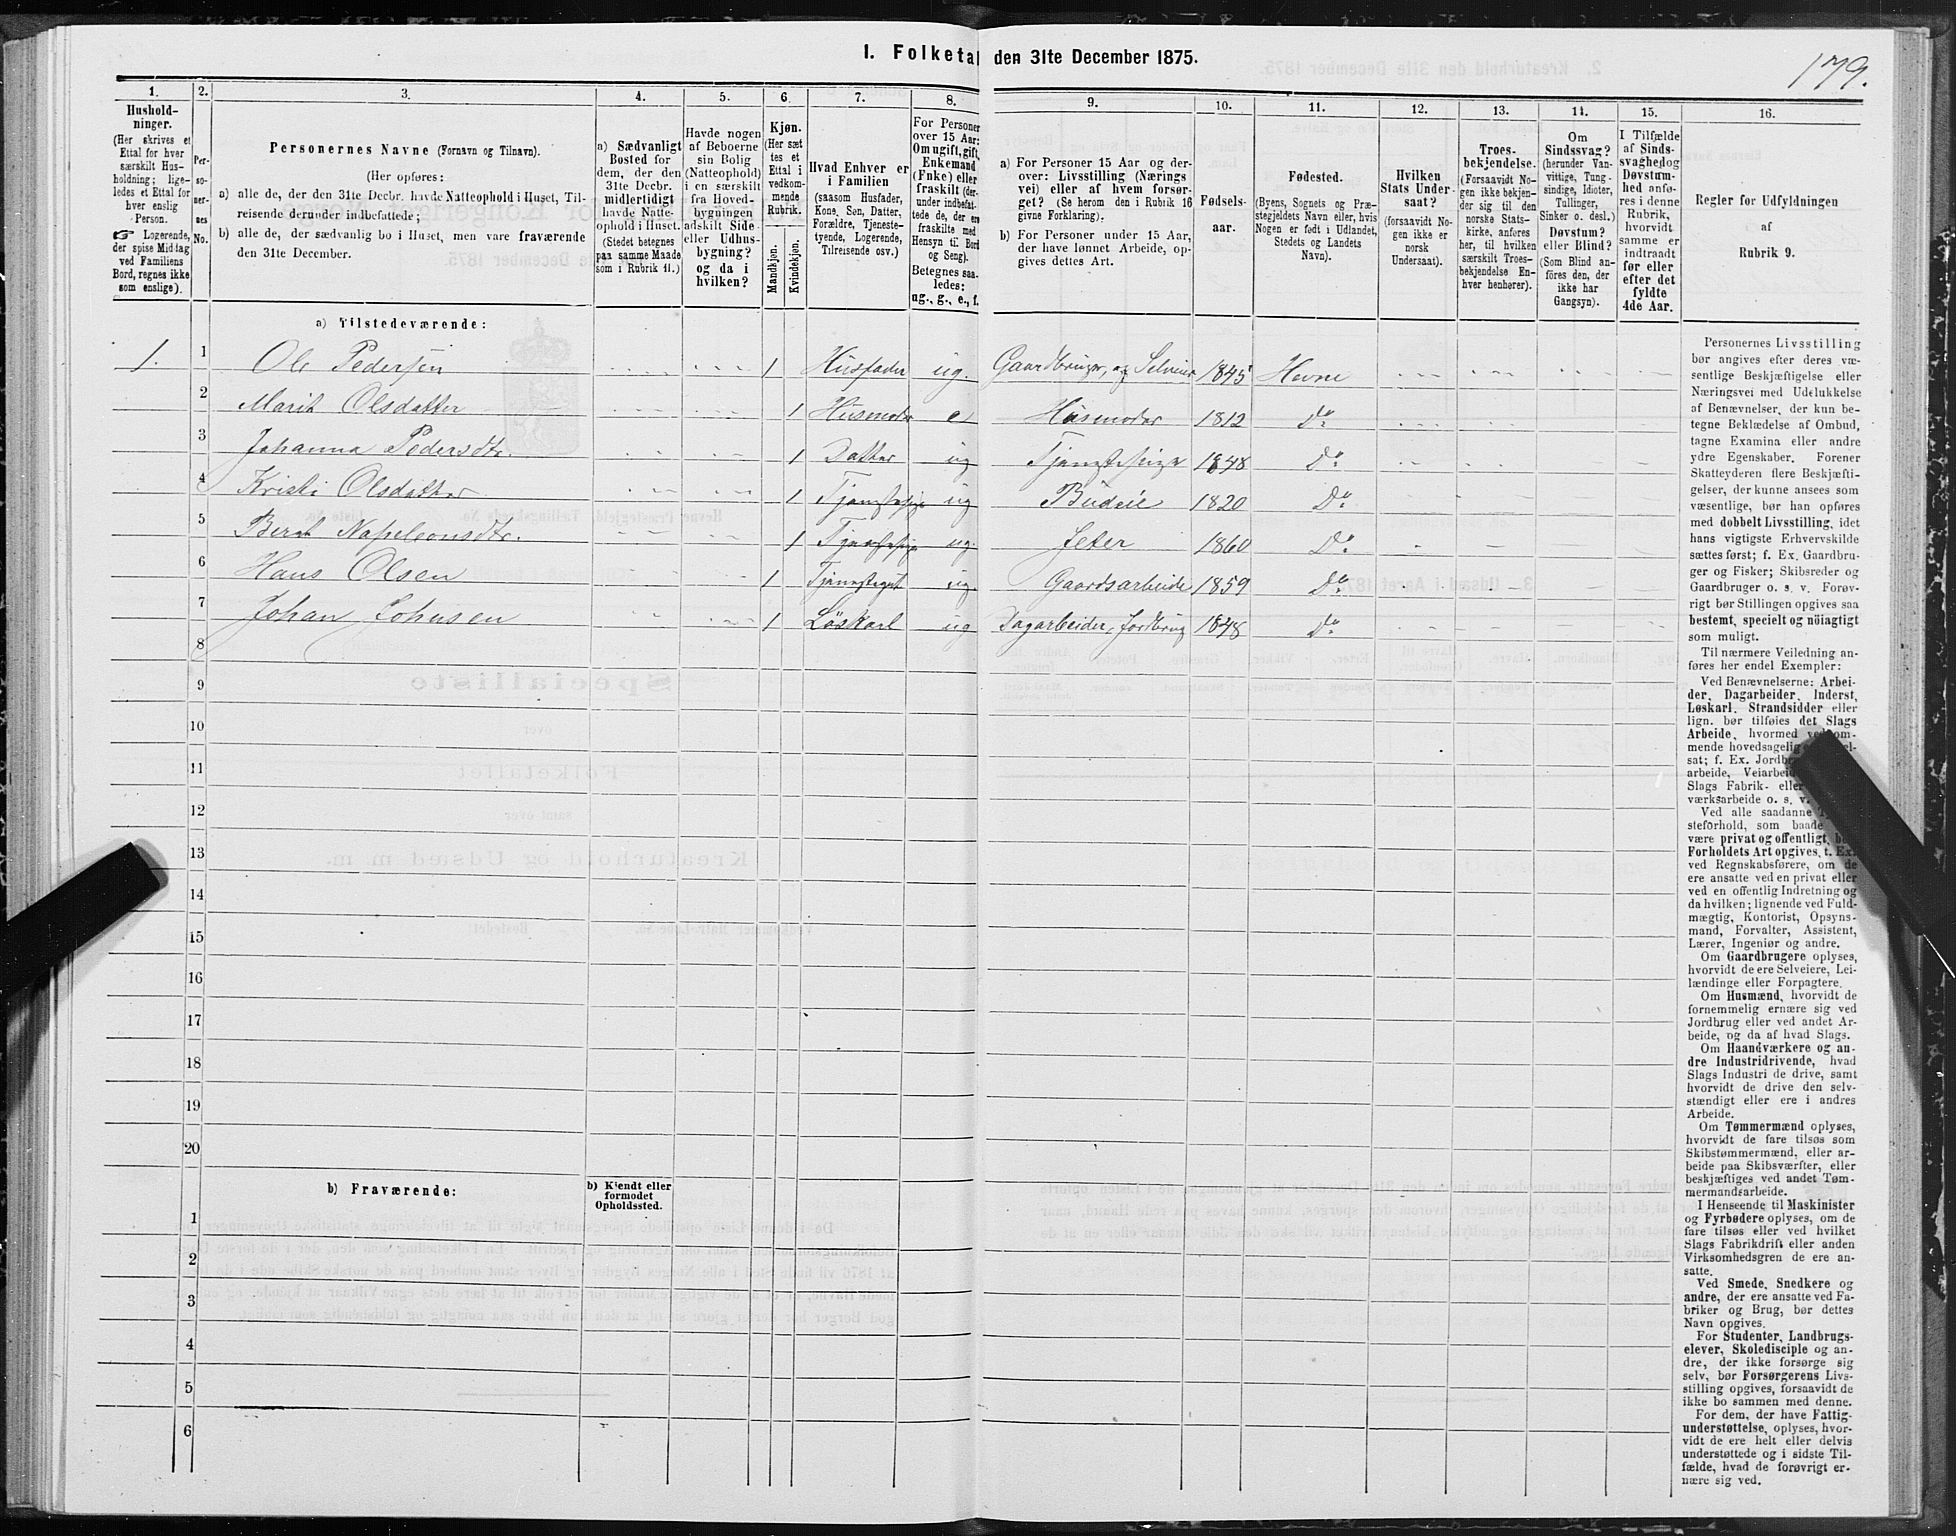 1. Folketal den 31te December 1875.
179.
1.
Hushold-
ninger.
(Her skrives et
Ettal for hver
særskilt Hus-
holdning; lige-
ledes et Ettal for
hver enslig
Person.
☞ Logerende,
der spise Middag
ved Familiens
Bord, regnes ikke
som enslige).
2.
Per-
so-
ner-
nes
No.
3.
Personernes Navne (Fornavn og Tilnavn).
(Her opføres:
a) alle de, der den 31te Decbr. havde Natteophold i Huset, Til-
reisende derunder indbefattede;
b) alle de, der sædvanlig bo i Huset, men vare fraværende
den 31te December.
4.
a) Sædvanligt
Bosted for
dem, der den
31te Decbr.
midlertidigt
havde Natte-
ophold i Huset.
(Stedet betegnes
paa samme Maade
som i Rubrik 11.)
5.
Havde nogen
af Beboerne
sin Bolig
(Natteophold)
i en særskilt
fra Hoved-
bygningen
adskilt Side-
eller Udhus-
bygning?
og da i
hvilken?
6.
Kjøn.
(Her sæt-
tes et
Ettal i
vedkom-
mende
Rubrik.
Mandkjøn.
Kvindekjøn.
7.
Hvad Enhver er
i Familien
(saasom Husfader,
Kone, Søn, Datter,
Forældre, Tjeneste-
tyende, Logerende,
Tilreisende osv.)
8.
For Personer
over 15 Aar:
Om ugift, gift,
Enkemand
(Enke) eller
fraskilt (der-
under indbefat-
tede de, der ere
fraskilte med
Hensyn til Bord
og Seng).
Betegnes saa-
ledes:
ug., g., e., f.
9.
a) For Personer 15 Aar og der-
over: Livsstilling (Nærings
vei) eller af hvem forsør-
get? (Se herom den i Rubrik 16
givne Forklaring).
b) For Personer under 15 Aar,
der have lønnet Arbeide, op-
gives dettes Art.
10.
Fødsels-
aar.
11.
Fødested.
(Byens, Sognets og Præ-
stegjeldets Navn eller, hvis
Nogen er født i Udlandet,
Stedets og Landets
Navn).
12.
Hvilken
Stats Under-
saat?
(forsaavidt No-
gen ikke er
norsk
Undersaat).
13.
Troes-
bekjendelse.
(Forsaavidt No-
gen ikke bekjen-
der sig til den
norske Stats-
kirke, anføres
her, til hvilken
særskilt Troes-
bekjendelse En-
hver henhører).
14.
Om
Sindssvag?
(herunder Van-
vittige, Tung-
sindige, Idioter,
Tullinger,
Sinker o. desl.)
Døvstum?
eller Blind?
(Som Blind an-
føres den, der
ikke har
Gangsyn).
15.
I Tilfælde
af Sinds-
svaghed og
Døvstum-
hed anfø-
res i denne
Rubrik,
hvorvidt
samme er
indtraadt
før eller
efter det
fyldte
4de Aar.
16.
Regler før Udfyldningen
af
Rubrik 9.
a) Tilstedeværende:
1. 1 Ole Pedersen 1 Husfader ug. Gaardbruger, og Selveier 1845 Hevne
2 Marit Olsdatter 1 Husmoder e Husmoder 1812 Do
3 Johanna Pedersdtr. 1 Datter ug Tjenestepige 1848 Do
4 Kristi Olsdatter 1 Tjenestepige ug Budeie 1820 Do
5 Berit Napoleonsdtr. 1 Tjenestepige ug. Jeter 1860 Do
6 Hans Olsen 1 Tjenestegut ug. Gaardsarbeide 1859 Do
7 Johan Johnsen 1 Løskarl ug Dagarbeider, Jordbrug 1848 Do
8
9
10
11
12
13
14
15
16
17
18
19
20
b) Fraværende:
b) Kjendt eller
formodet
Opholdssted.
1
2
3
4
5
6
Personernes Livsstilling
bør angives efter deres væ-
sentlige Beskjæftigelse eller
Næringsvei med Udelukkelse
af Benævnelser, der kun be-
tegne Beklædelse af Ombud,
tagne Examina eller andre
ydre Egenskaber. Forener
Skatteyderen flere Beskjæfti-
gelser, der kunne ansees som
væsentlige, bør han opføres
med dobbelt Livsstilling, idet
hans vigtigste Erhvervskilde
sættes først; f. Ex. Gaardbru-
ger og Fisker; Skibsreder og
Gaardbruger o. s. v. Forøv-
rigt bør Stillingen opgives saa
bestemt, specielt og nöiagtigt
som muligt.
Til nærmere Veiledning an-
føres her endel Exempler:
Ved Benævnelserne: Arbei-
der, Dagarbeider, Inderst,
Løskarl, Strandsidder eller
lign. bør tilføies det Slags
Arbeide, hvormed
mende hovedsagelig
sat; f. Ex.
arbeide,
Slags Fabrik- eller
værksarbeide o. s. v.
Ved alle saadanne
steforhold, som baade
være privat og offentligt,
Forholdets Art opgives, t. Ex.
ved Regnskabsførere, om de
ere ansatte ved en privat eller
ved en offentlig Indretning og
da hvilken; lignende ved Fuld-
mægtig, Kontorist, Opsyns-
mand, Forvalter, Assistent,
Lærer, Ingeniør og andre.
Om Gaardbrugere oplyses,
hvorvidt de ere Selveiere, Lei-
lændinge eller Forpagtere.
Om Husmænd, hvorvidt de
fornemmelig ernære sig ved
Jordbrug eller ved andet Ar-
beide, og da af hvad Slags.
Om Haandværkere og an-
dre Industridrivende, hvad
Slags Industri de drive, samt
hvorvidt de drive den selv-
stændigt eller ere i andres
Arbeide.
Om Tømmermænd oplyses,
hvorvidt de fare tilsøs som
Skibstømmermænd, eller ar-
beide paa Skibsværfter, eller
beskjæftiges ved andet Tøm-
mermandsarbeide.
I Henseende til Maskinister
og Fyrbødere oplyses, om de
fare tilsøs eller ved hvilket
Slags Fabrikdrift eller anden
Virksomhedsgren de ere an-
satte.
Ved Smede, Snedkere og
andre, der ere ansatte ved Fa-
briker og Brug, bør dettes
Navn opgives.
For Studenter, Landbrugs-
elever, Skoledisciple og an-
dre, der ikke forsørge sig
selv, bør Forsørgerens Livs-
stilling opgives, forsaavidt de
ikke bo sammen med denne.
For dem, der have Fattig-
understøttelse, oplyses, hvor-
vidt de ere helt eller delvis
understøttede og i sidste Til-
fælde, hvad de forøvrigt er-
nære sig ved.